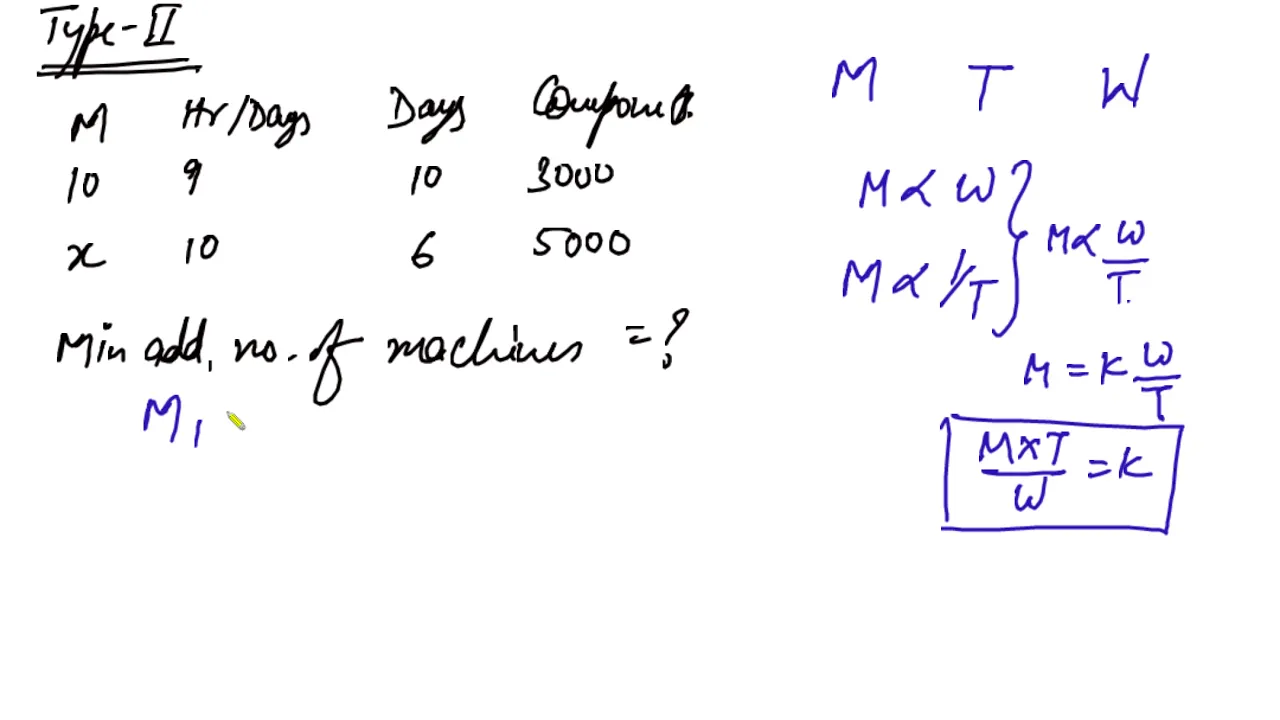 Type-II
M Hr/Days Days Component.
10 9 10 3000
x 10 6 5000
Min add, no. of machines = ?
M1
M T W
M ∝ W
M ∝ 1/T
M ∝ W/T.
M = K W/T
M×T/W = K